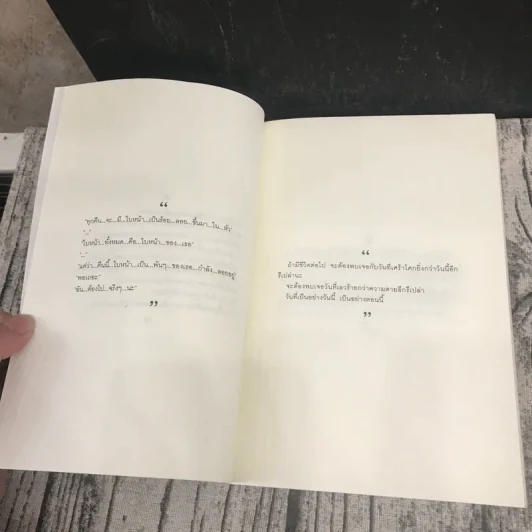 “
"ทุกคืน...จะ...มี...ใบหน้า...เป็นร้อย...ลอย...ขึ้นมา...ใน...หัว"
"ใบหน้า...ทั้งหมด...คือ...ใบหน้า...ของ...เธอ"
"แต่ว่า...คืนนี้...ใบหน้า...เป็น...พันๆ...ของเธอ...กำลัง...ลอยอยู่
"พอเถอะ"
"ฉัน...ต้องไป...จริงๆ...นะ"
”
“
ถ้ามีชีวิตต่อไป จะต้องพบเจอกับวันที่เศร้าโศกยิ่งกว่าวันนี้อีก
รึเปล่านะ
จะต้องพบเจอวันที่เลวร้ายกว่าความตายอีกรึเปล่า
วันที่เป็นอย่างวันนี้ เป็นอย่างตอนนี้
”